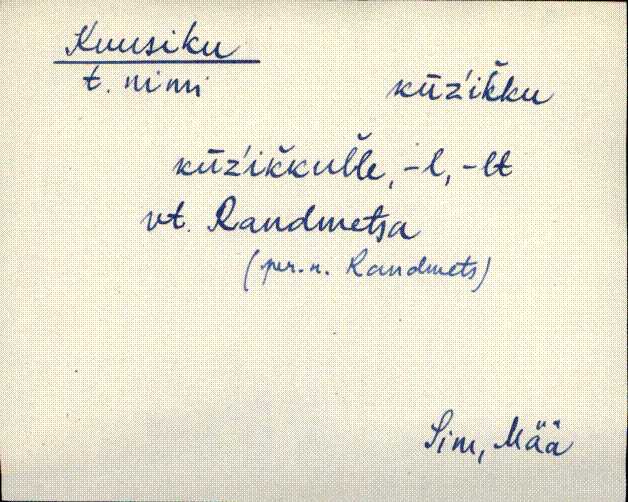 Kuusiku
t. nimi kūz'ik̆ku
kūz'ik̆kul̆le, -l, -lt
vt. Randmetsa
(per.n. Randmets)
Sim, Mää